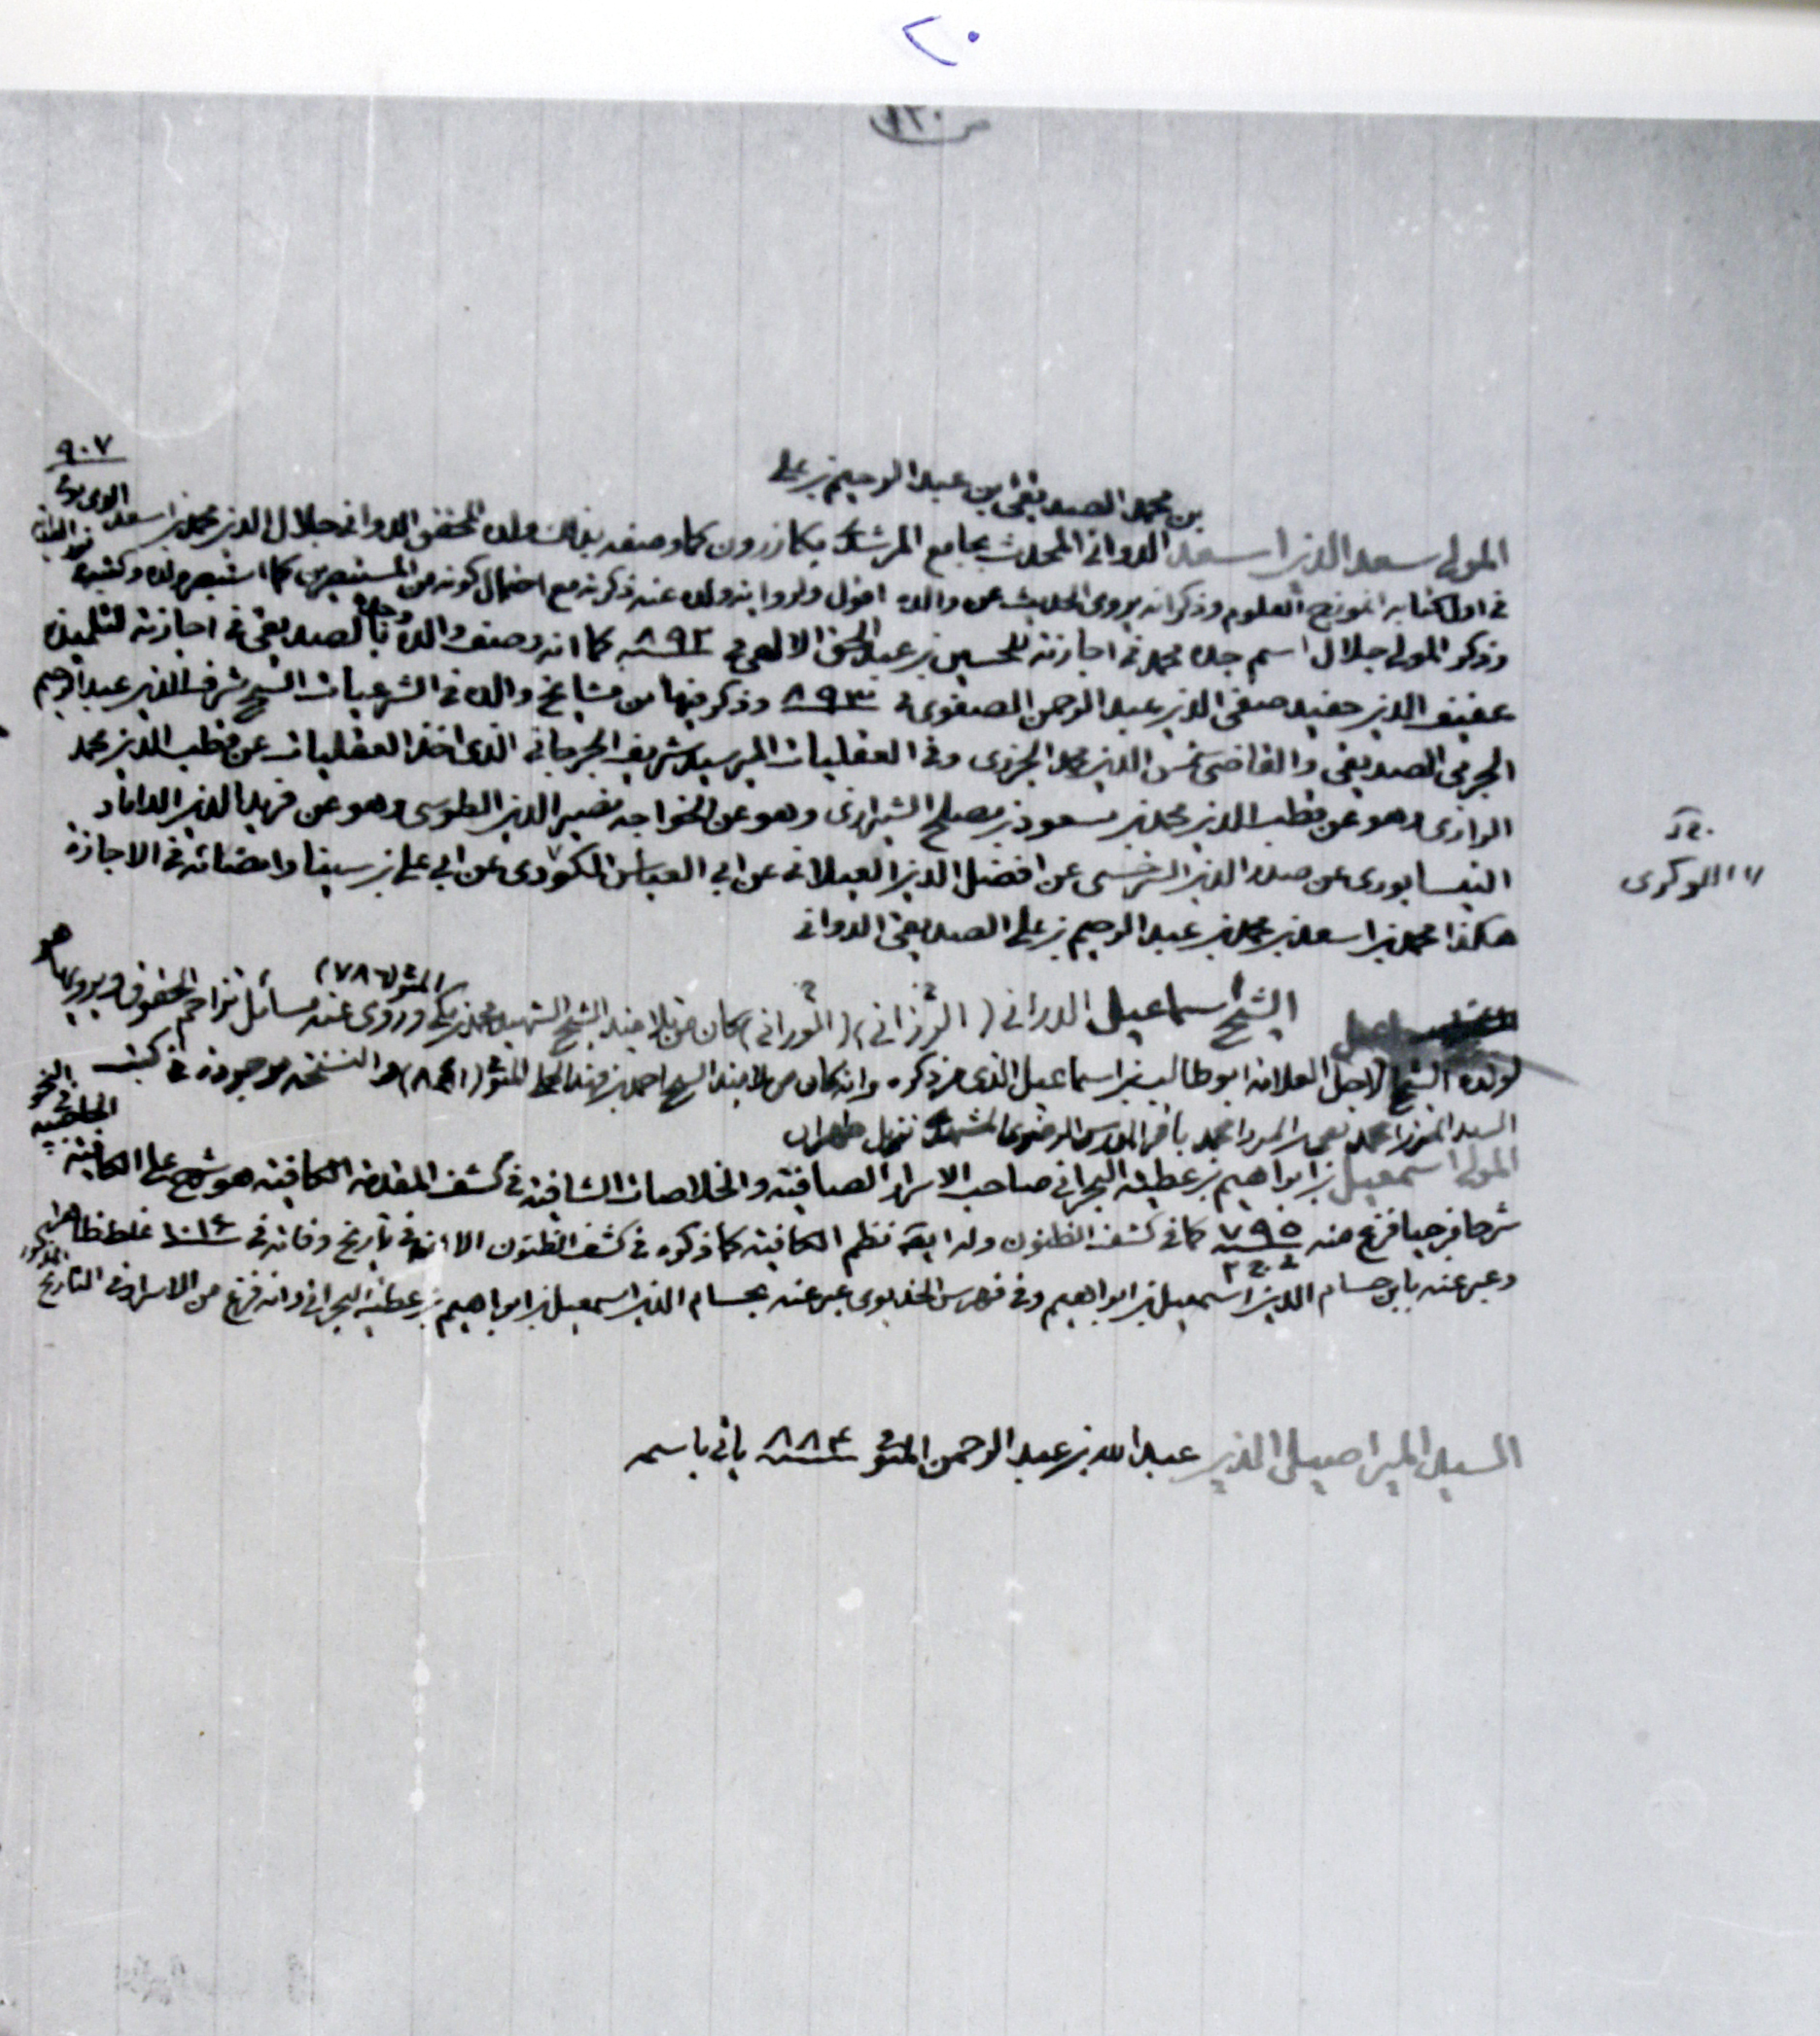 ٢٠
ص ١٢٠
بن محمد الصديقي بن عبد الرحيم بن علي
٩٠٧
المولى سعد الدين اسعد الدواني المحدث بجامع المرشدى بكازرون كما وصفه بذلك ولده المحقق الدواني جلال الدين محمد بن اسعد
في اول كتابه انموذج العلوم وذكر انه يروى الحديث عن والده اقول ولرواية ولده عنه ذكرته مع احتمال كونه من المستبصرين كما استبصر ولده وكتب
وذكر المولى جلال اسم جده محمد في اجازته للحسين بن عبد الحق الالهي في ٨٩٢ كما انه وصف والده وجده بالصديقي في اجازته لتلميذه
عفيف الدين حفيد صفي الدين عبد الرحمن الصفوى في ٨٩٣ وذكر فيها من مشايخ والده في الشرعيات الشيخ شرف الدين عبد الرحيم
الجرمى الصديقي والقاضي شمس الدين محمد الجزرى وفي العقليات المير سيد شريف الجرجاني الذى اخذ العقليات عن قطب الدين محمد
الرازى وهو عن قطب الدين محمد بن مسعود بن مصلح الشيرازى وهو عن الخواجه نصير الدين الطوسى وهو عن فريد الدين الداماد
النيسابورى عن صدر الدين السرخسى عن افضل الدين الغيلانى عن ابي العباس اللكودى عن ابي علي بن سينا وامضائه في الاجازة
اللوكرى
هكذا محمد بن اسعد بن محمد بن عبد الرحيم بن علي الصديقي الدواني
الشيخ اسماعيل الدراني (الرزاني) (النوراني) كان من تلاميذ الشيخ الشهيد محمد بن مكي المتوفى (٧٨٦) وروى عنه مسائل تزاحم الحقوق ويرويها هو
لولده الشيخ الاجل العلامه ابو طالب بن اسماعيل الذى مر ذكره وانه كان من تلاميذ الشيخ احمد بن فهد الحلي المتوفى (٨٤١) والنسخه موجودة في كتب
السيد الميرزا محمد تقي بن الميرزا محمد باقر المدرس الرضوى المشهدى نزيل طهران
المولى اسمعيل بن ابراهيم بن عطيه البحراني صاحب الاسرار الصافية والخلاصات الشافية في كشف المقدمة الكافية هو شرح على الكافية الحاجبيه في النحو
شرحا مزجيا فرغ منه ٧٩٥ كما في كشف الظنون وله ايضا نظم الكافية كما ذكره في كشف الظنون الا انه في تأريخ وفاته في ١٠١٦ غلط ظاهرا
وعبر عنه بابن حسام الدين اسمعيل بن ابراهيم وفي فهرس الخديوى عبر عنه بحسام الدين اسمعيل بن ابراهيم بن عطية البحراني وانه فرغ من الاسرار في التاريخ المذكور
السيد المير اصيل الدين عبد الله بن عبد الرحمن المتوفى ٨٨٤ يأتي باسمه